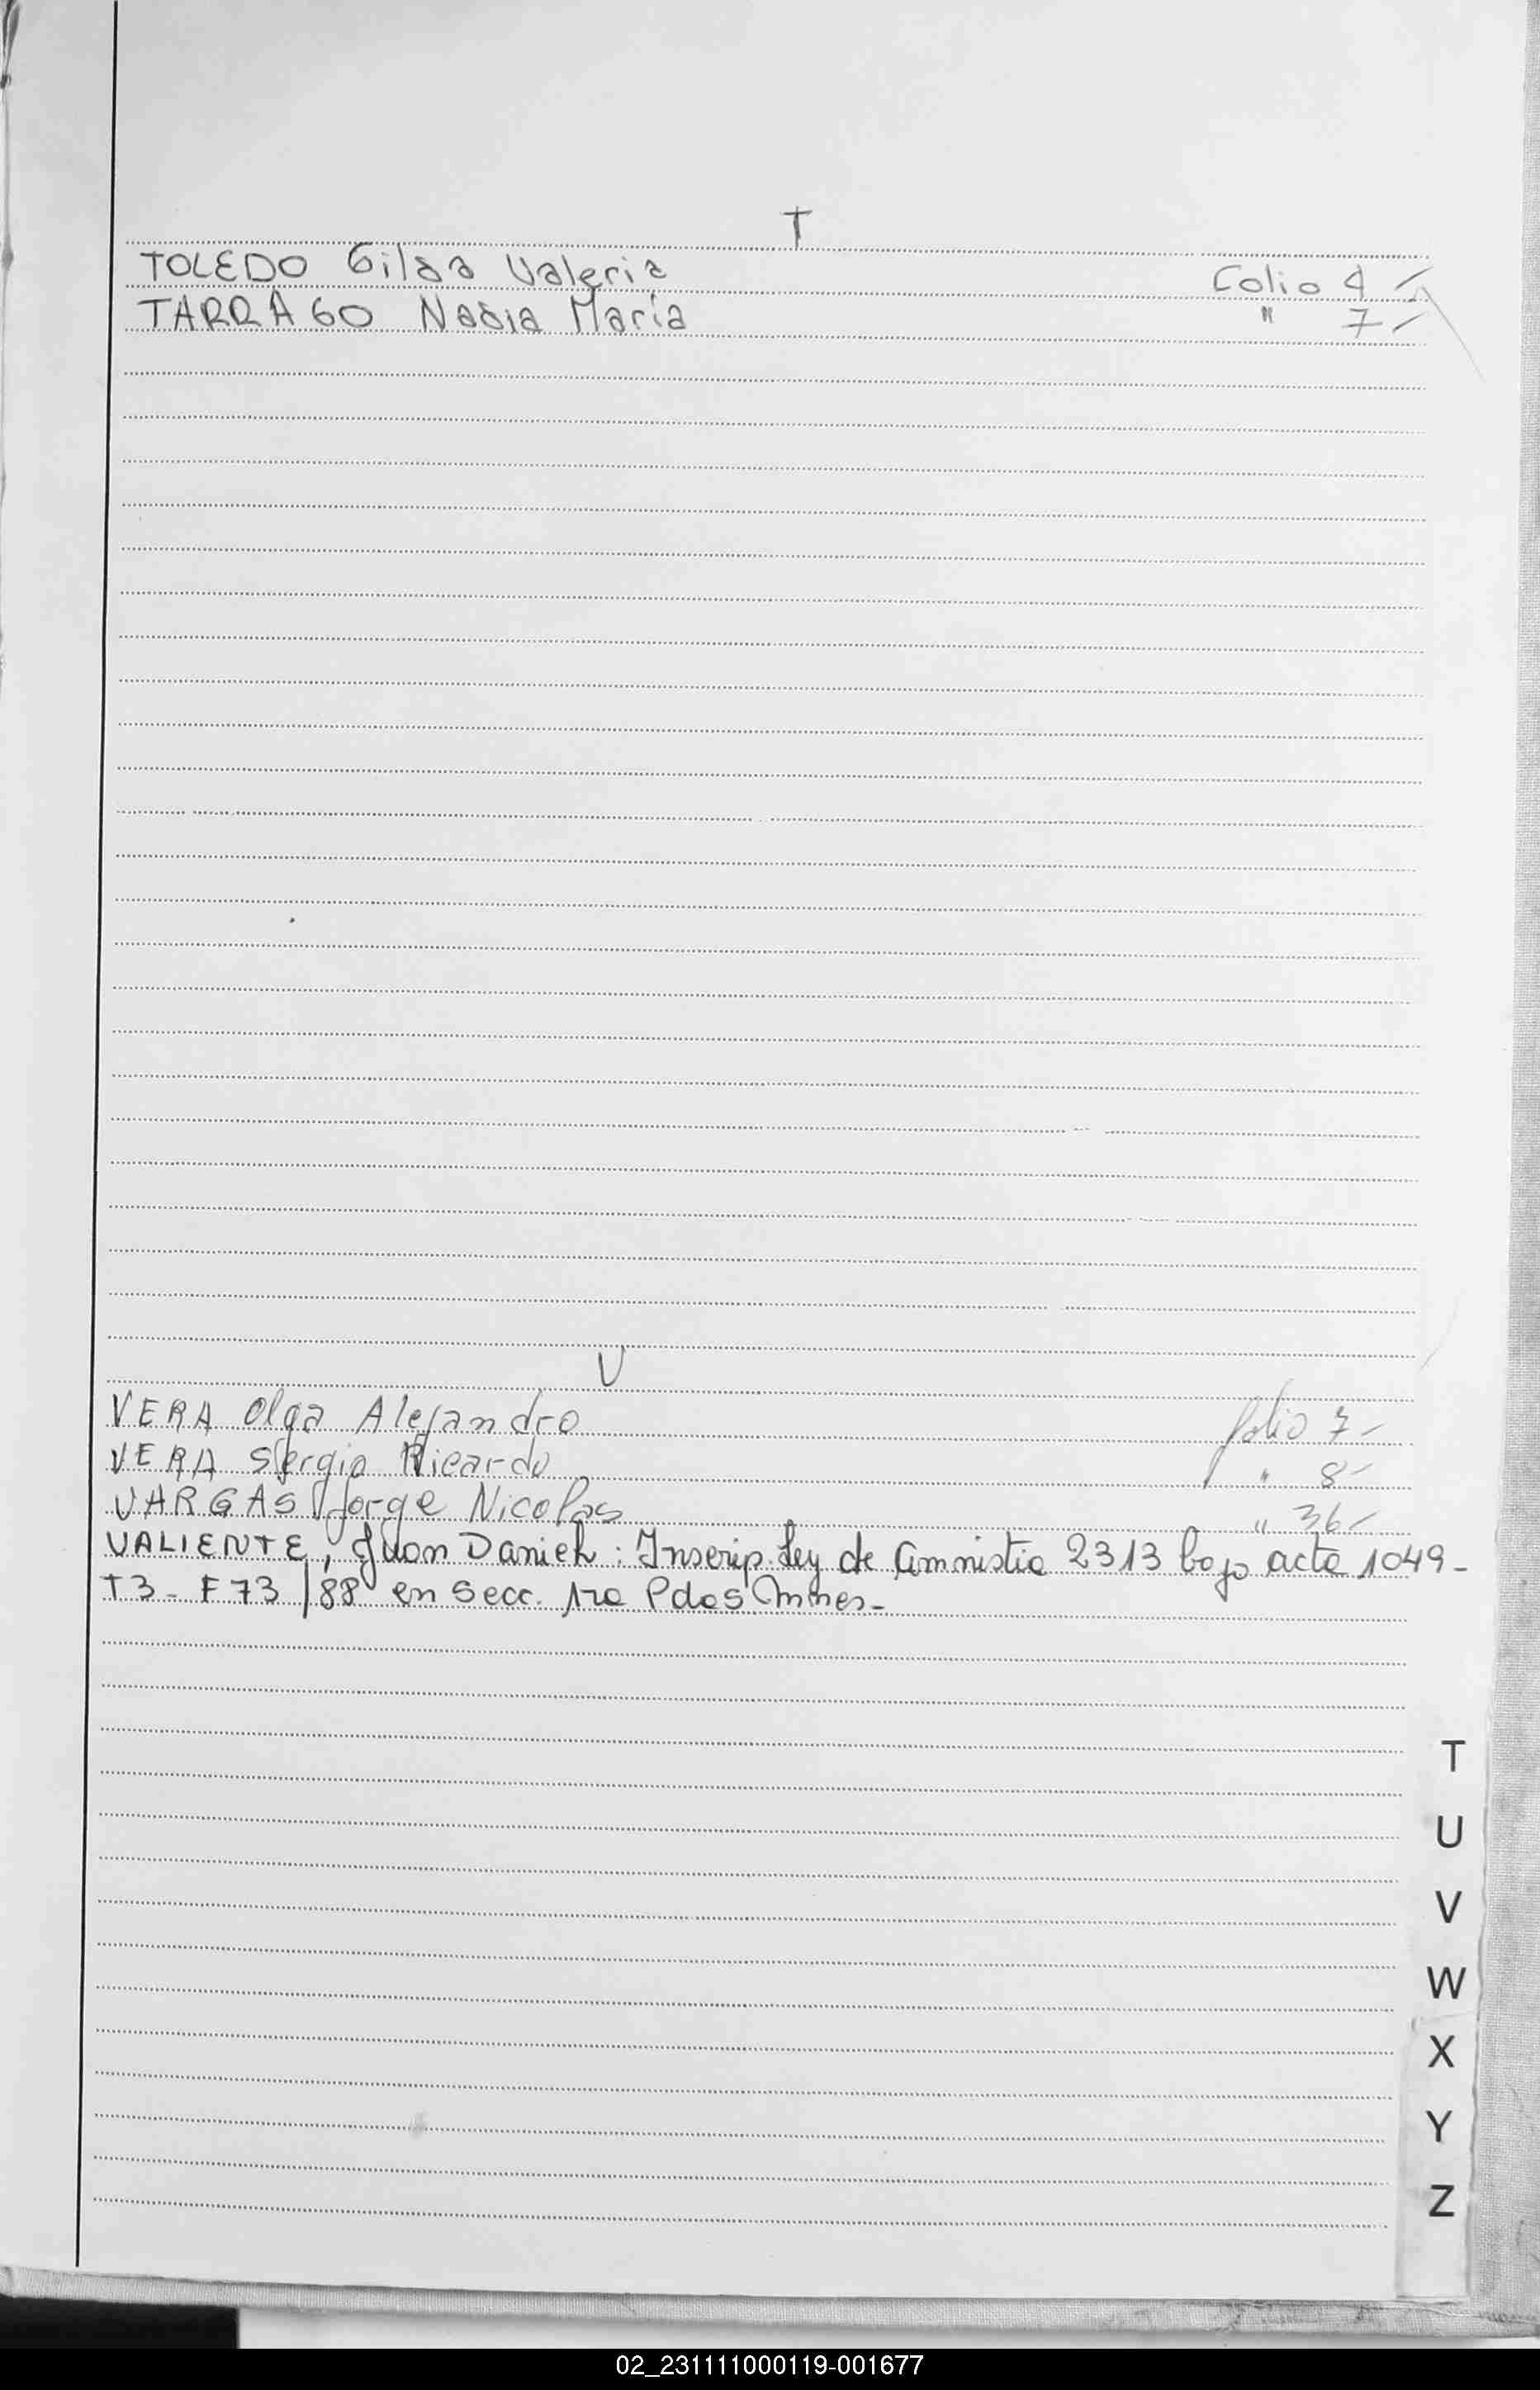 T
TOLEDO Gilda Valeria Folio 4 -
TARRAGO Nadia María " 7 -
V
VERA Olga Alejandro folio 7 -
VERA Sergio Ricardo " 8 -
VARGAS Jorge Nicolas " 36 -
VALIENTE, Juan Daniel : Inscrip. Ley de Amnistia 2313 bajo acta 1049 -
T3 - F 73 /88 en Secc. 1ra Pdos
T
U
V
W
X
Y
Z
02_231111000119-001677